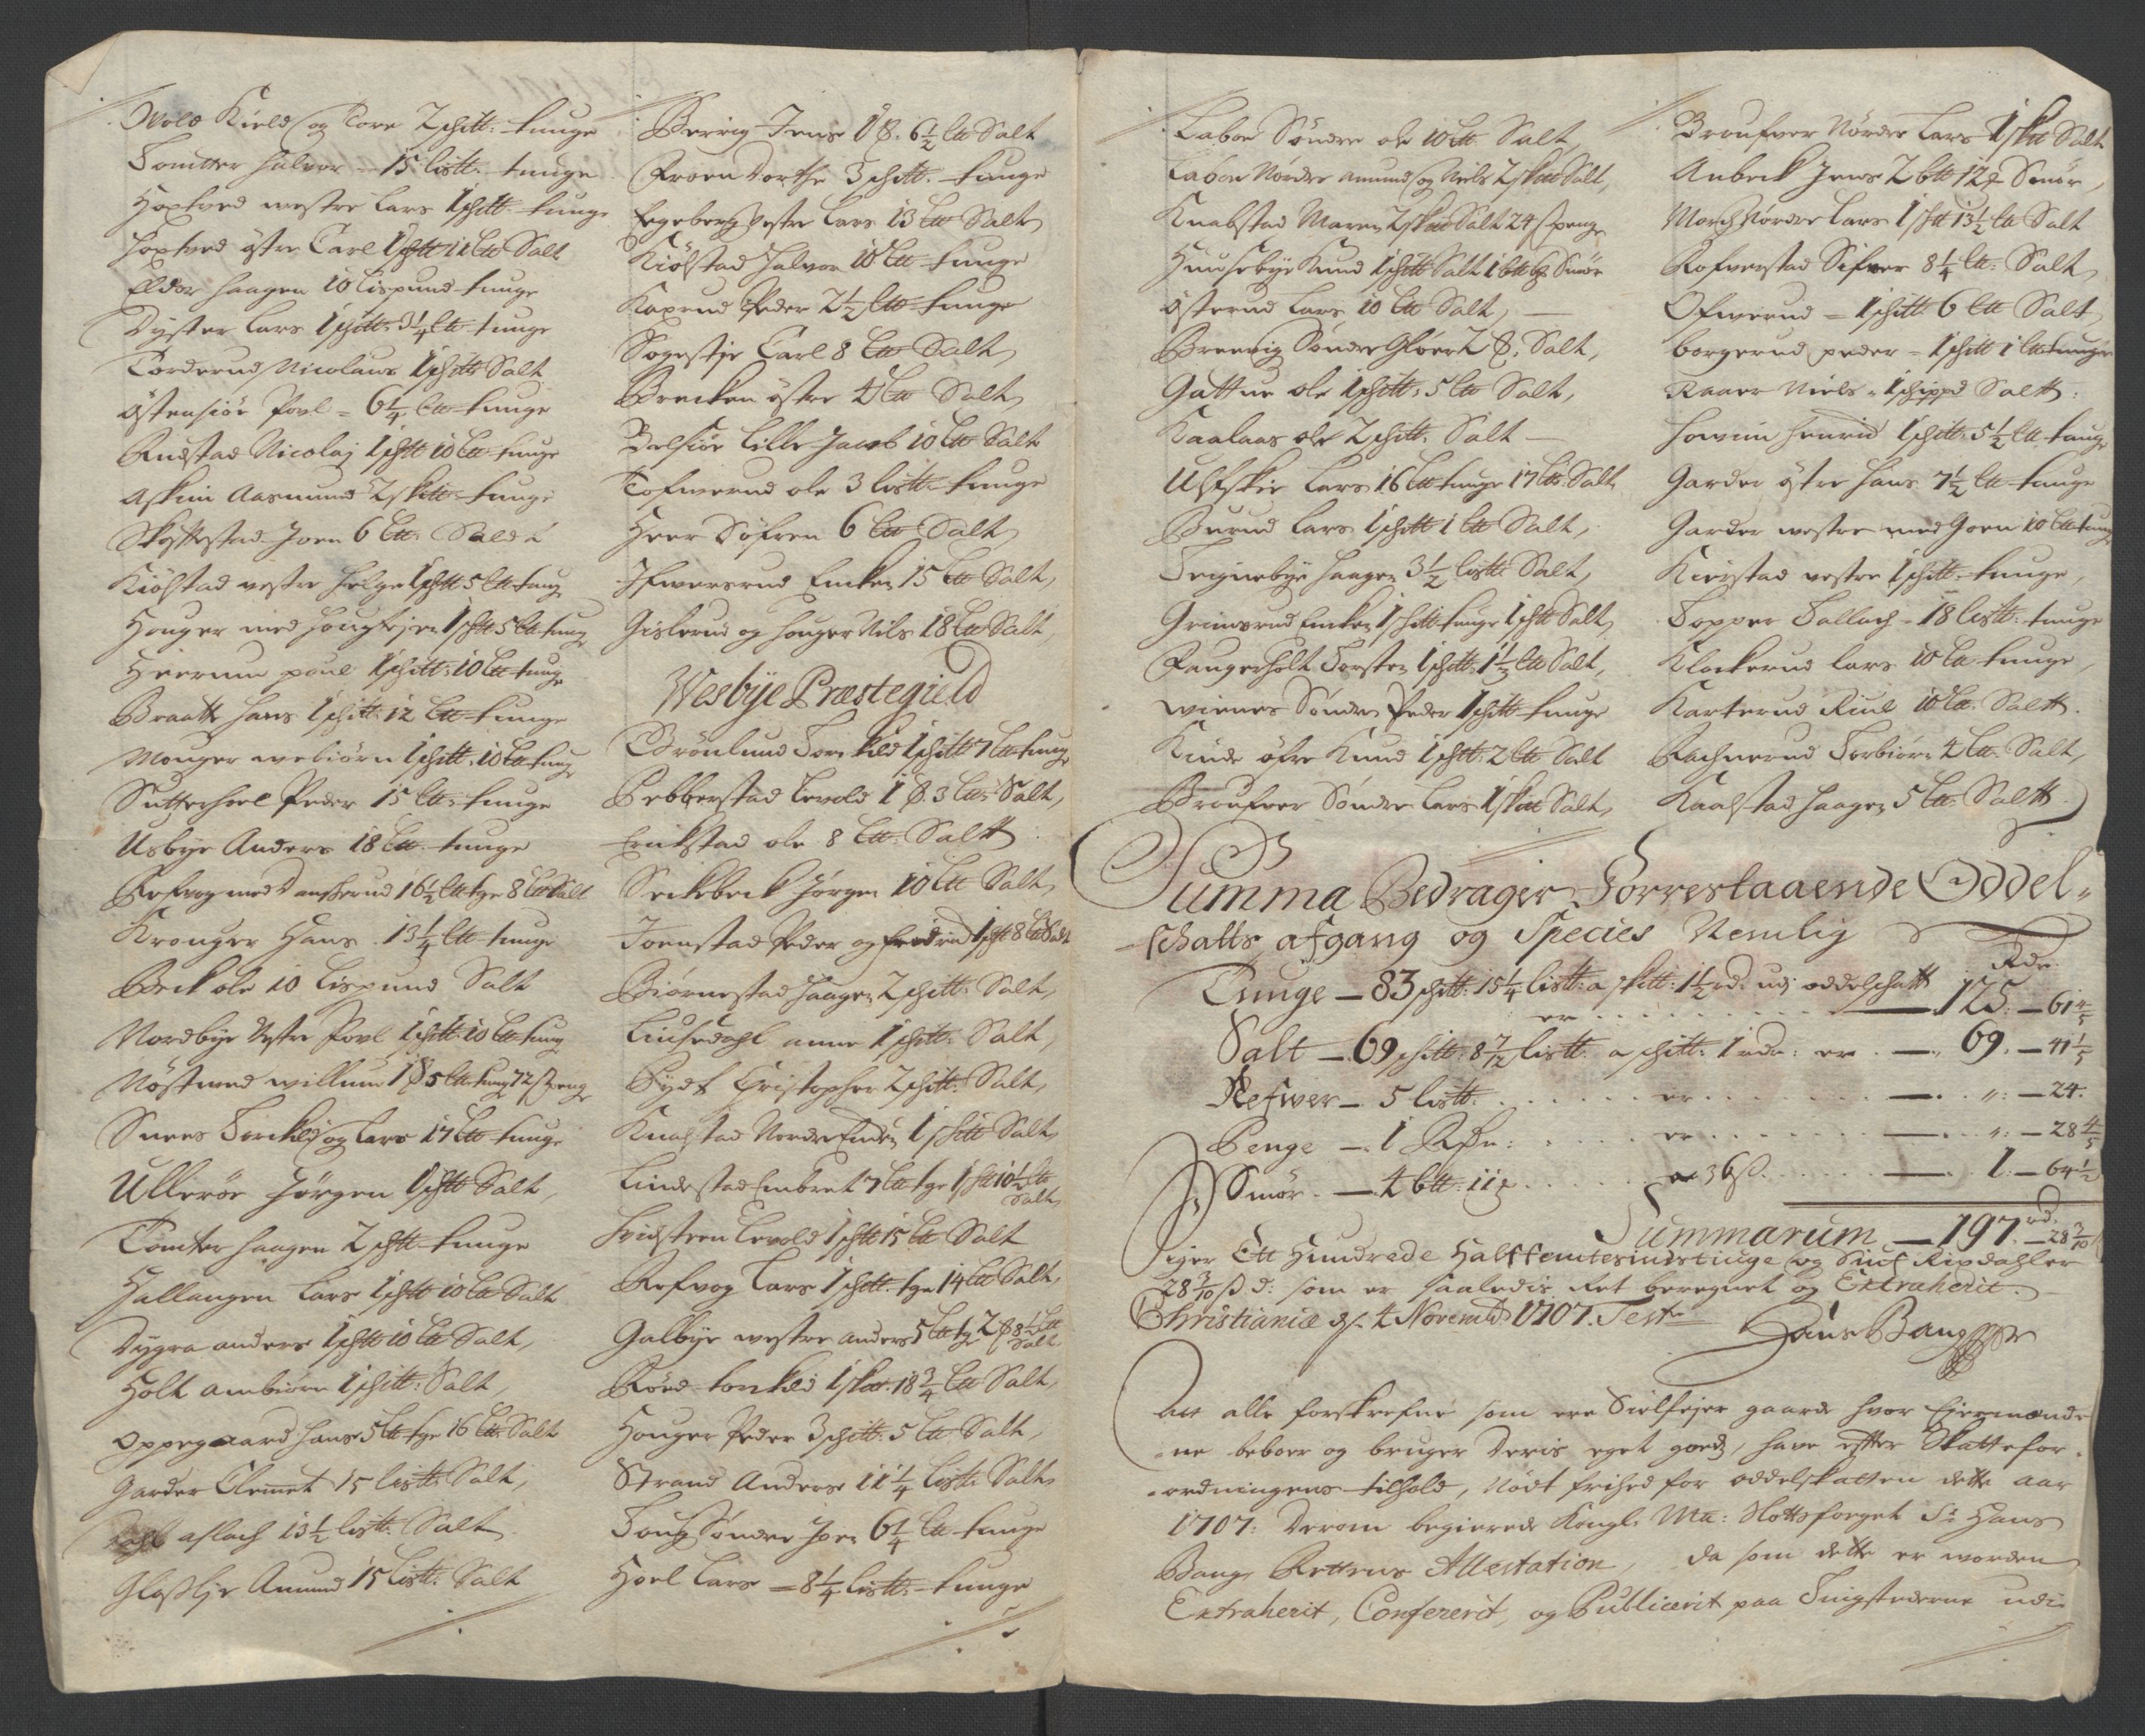 Wold Kield og Tore 2 schtt: tunge
Tomtter Halvor 15 listt: tunge
Hoxtved westre Lars 1 schtt tunge
Hoxtved östre Carl 1 schtt 11 Ltt Salt
Eldor Haagen 10 Lispund tunge
Dyster Lars 1 schtt: 3 1/4 Ltt tunge
Torderud Nicolaus 1 schtt Salt
Östensiör Povl = 6 1/4 Ltt tunge
Rustad Nicolaj 1 schtt 10 Ltt tunge
Askim Aasmund 2 schtt tunge
Skyttestad Joen 6 Ltt: Salt
Kiölstad vestre Helge 1 schtt 5 Ltt tung
Houger med 1 schtt 5 Ltt tung
Heierum poul 1 schtt: 10 Ltt tung
Braatte Hans 1 schtt 12 Ltt tunge
Monger webiörn 1 schtt: 10 Ltt tung
Sutterhoel Peder 15 Ltt: tunge
Usbye Anders 18 Ltt tunge
Refvog med 16 1/2 Ltt tge 8 Ltt Salt
Kronger Hans 13 1/4 Ltt tunge
Beck ole 10 Lispund Salt
Nordbye Vestre Povl 1 schtt: 10 Ltt tung
Nöstved willum 1 ß 5 Ltt tung 72 ß peng
Snees Torckild og Lars 17 Ltt tunge
Ulleröe Jörgen 1 schtt Salt,
Tomter Haagen 2 schtt tunge
Hallangen Lars 1 schtt 10 Ltt Salt
Dygra anders 1 schtt 10 Ltt Salt,
Holt ambiörn 1 schtt: Salt,
Oppegaard Hans 5 Ltt tge 16 Ltt Salt
Garder Clemet 15 listt: Salt,
Dahl aslach 13 1/2 listt: Salt
Glosslie Amund 15 Listt: Salt
Berrig Jens 1 ß. 6 1/2 Ltt Salt
Froen Dorthe 3 schtt. tunge
Egeberg Vestre Lars 13 Ltt Salt
Kiölstad Halvor 10 Ltt tunge
Kaxrud Peder 2 1/2 Ltt tunge
Sogestje Carl 8 Ltt Salt,
Brecken östre 4 Ltt Salt,
Belsiöe Lille Jacob 10 Ltt Salt
Tofwerud ole 3 listt tunge
Heer Söfren 6 Ltt Salt
Ifwersrud Encken 15 Ltt Salt,
Gislerud og Houger Nils 18 Ltt Salt,
Wesbye Præstegield
Grönlund Torckild 1 schtt 7 Ltt tung
Pebberstad Levold 1 ß. 3 Ltt Salt,
Erickstad ole 8 Ltt Saltt
Seckebeck Jörgen 10 Ltt Salt,
Joenstad Peder og 1 schtt 8 Ltt Salt
Biörnestad Haagen 2 schtt: Salt,
Liusedahl anne 1 schtt: Salt,
Bydt Christopher 2 schtt: Salt,
Knabstad Nordre Enken 1 schtt Salt
Lindestad Embret 7 Ltt tge 1 schtt 10 1/2 Ltt Salt
Hvidsteen Levold 1 schtt 15 Ltt Salt
Refvog Lars 1 schtt. tge 14 Ltt Salt,
Galbye westre anders 5 Ltt tge 2 ß 8 1/2 Ltt Salt
Röed torckild 1 schtt. 18 3/4 Ltt Salt,
Houger Peder 3 schtt: 5 Ltt Salt,
Strand Anders 11 1/4 Listt Salt
Toug Söndre Joen 6 1/4 Ltt tunge
Hoel Lars = 8 1/4 listt: tunge
Laboe Söndre ole 10 Ltt Salt,
Laboe Nordre Amund og Niels 2 schtt Salt,
Knabstad Maren 2 schtt Salt 24 ß penge
Huusebye Knud 1 schtt Salt 1 btt 6 Smör
Österud Lars 10 Ltt Salt,
Breevig Söndre Gloer 2 ß. Salt,
Guttue ole 1 schtt: 5 Ltt Salt,
Kaalaas ole 2 schtt. Salt
Ulfskie Lars 16 Ltt tunge 17 Ltt Salt
Burud Lars 1 schtt 1 Ltt Salt,
Teignebye Haagen 3 1/2 listt Salt,
Grimsrud Encken 1 schtt tunge 1 schtt Salt
Fangerholt Torsten 1 schtt: 1 1/2 Ltt Salt,
wienes Söndre Peder 1 schtt tunge
Kinde öfre Knud 1 schtt: 2 Ltt Salt
Broufver Söndre Lars 1 schtt Salt,
Broufver Nördre Lars 1 schtt Salt
Aabeck Jens 2 btt 12 Smör,
Morch Nordre Lars 1 schtt 13 1/2 Ltt Salt
Rofverstad Sifver 8 1/4 Ltt: Salt
Ofwerud = 1 schtt 6 Ltt Salt
borgerud peder = 1 schtt 1 Ltt tunge
Raaer Niels = 1 schippd Saltt:
Hovum Henrich 1 schtt: 5 1/2 Ltt tunge
Garder östre Hans 7 1/2 Ltt tunge
Garder westre med Goen 10 Ltt tung
Kierstad vestre 1 schtt tunge,
Topper Tallach = 18 listt: tunge
Klockerud Lars 10 Ltt tunge,
Karterud Riul 10 Ltt. Saltt.
Rachnerud Torbiörn 4 Ltt. Salt,
Kaalstad Haagen 5 Ltt: Saltt
Summa Bedrager Forrestaaende Oddel-
schatts afgang og Species Nemlig
Rdr.
Tunge — 83 schtt: 15 1/4 listt: a schtt: 1 1/2 rd. udj oddelschatt
er . . . — 125. — 61 4/5
Salt — 69 schtt: 8 7/12 listt. a schtt: 1 rdr: er . — 69. — 41 1/5
Refwer — 5 listt. . . . er . . . — ": — 24.
Penge — 1 Rdr: . . er . . . — ": — 28 4/5
Smör. — 4 btt: 11 . . . a 36 ß. . . — 1. — 64 1/2
Summarum — 197 rd. — 28 3/10
siger Ett Hundrede Halffemtesindstiuge og Siuf Rixdahler
28 3/10 ß d: som er saaledis Ret beregnet og Extraherit.
Christianiæ d. 4 Novembr 1707. Test
Hans Bang
Att alle forskrefne som ere Sielfejer gaarde hvor Ejermænde
ne beboer og bruger deris eget goeds, have efter Skattefor-
ordningens tilhold, Nödt frihed for oddelskatten dette aar
1707: Derom begierede Kongl. Ma: Slottsfoeget Sr. Hans
Bang Rettens Attestation, da som dette er worden
Extraherit, Confererit, og Publicerit paa Tingstederne udi